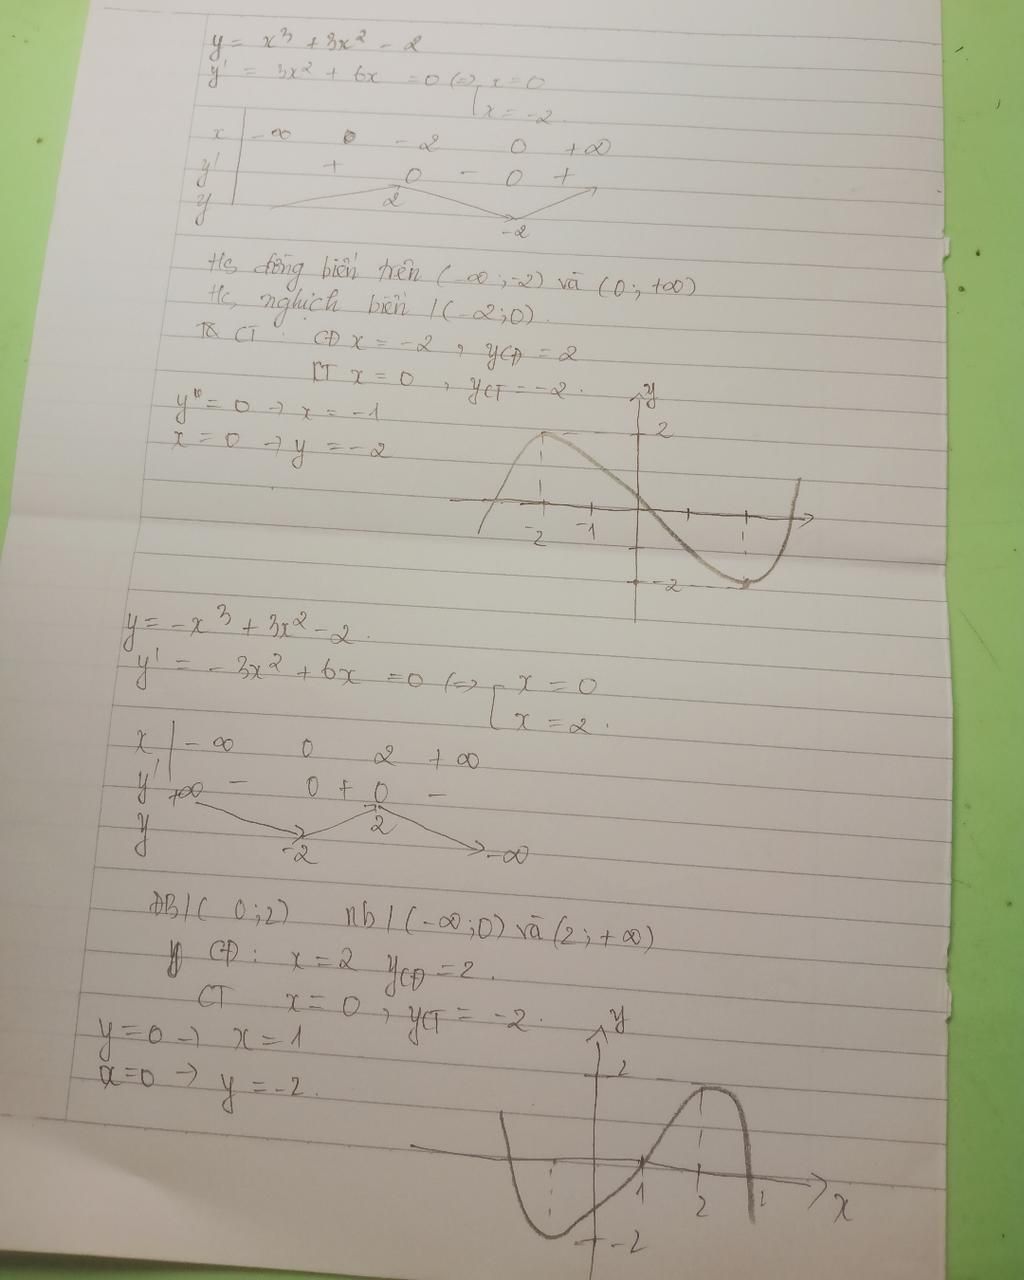 y = x³ + 3x² - 2
y' = 3x² + 6x = 0 (=> [ x = 0
x = -2
x | -∞ 0 -2 0 +∞
y' + 0 - 0 +
y 2
-2
Hs đồng biến trên (-∞; -2) và (0; +∞)
Hs nghịch biến / (-2; 0).
CT : CĐ x = -2, yCĐ = 2
CT x = 0, yCT = -2.
y" = 0 → x = -1
x = 0 → y = -2
y
2
-2 -1
-2
y = -x³ + 3x² - 2.
y' = -3x² + 6x = 0 (=> [ x = 0
x = 2.
x | -∞ 0 2 +∞
y' - 0 + 0 -
+∞
y 2
-2 -∞
ĐB / (0; 2) nb / (-∞; 0) và (2; +∞)
CĐ: x = 2 yCĐ = 2.
CT x = 0, yCT = -2.
y = 0 → x = 1
x = 0 → y = -2.
y
2
1 2
x
-2